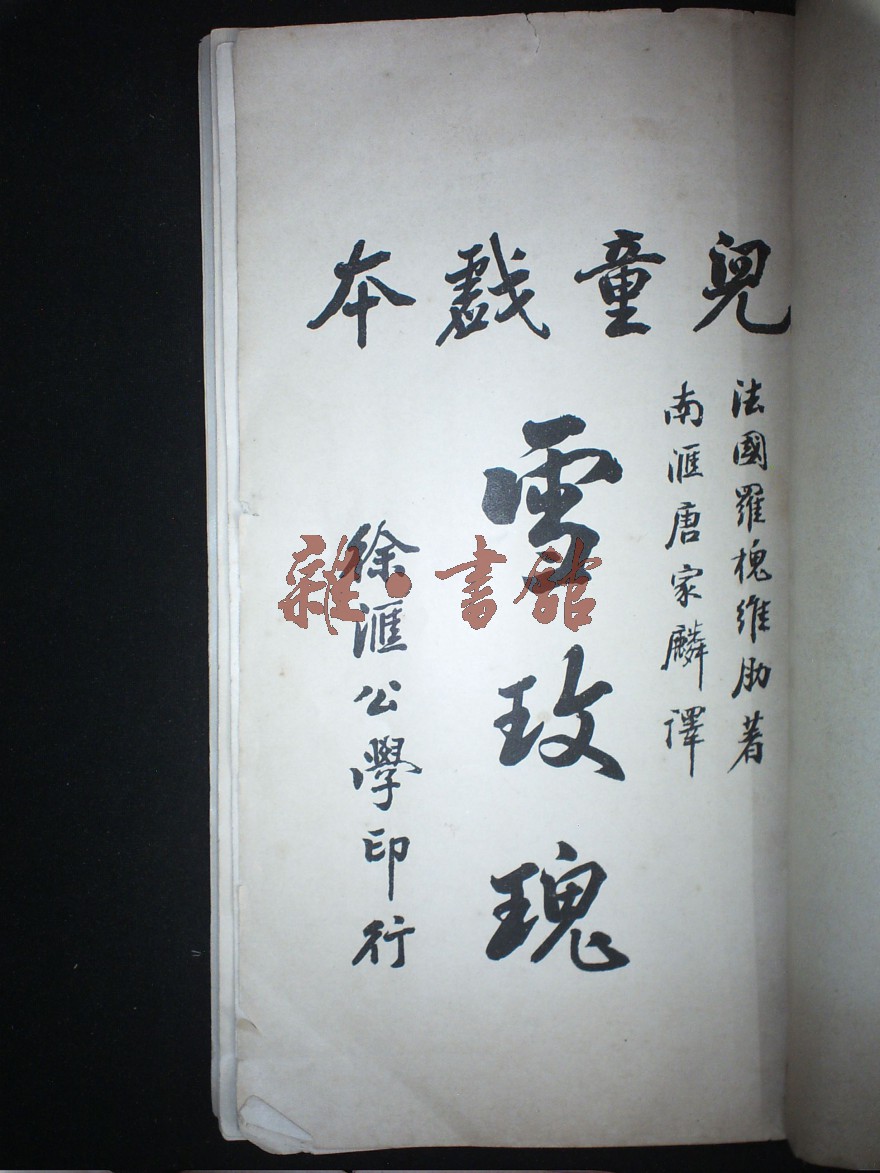 兒童戲本
法國羅槐維肋著
南滙唐家麟譯
雪玫瑰
徐滙公學印行
雜·書館